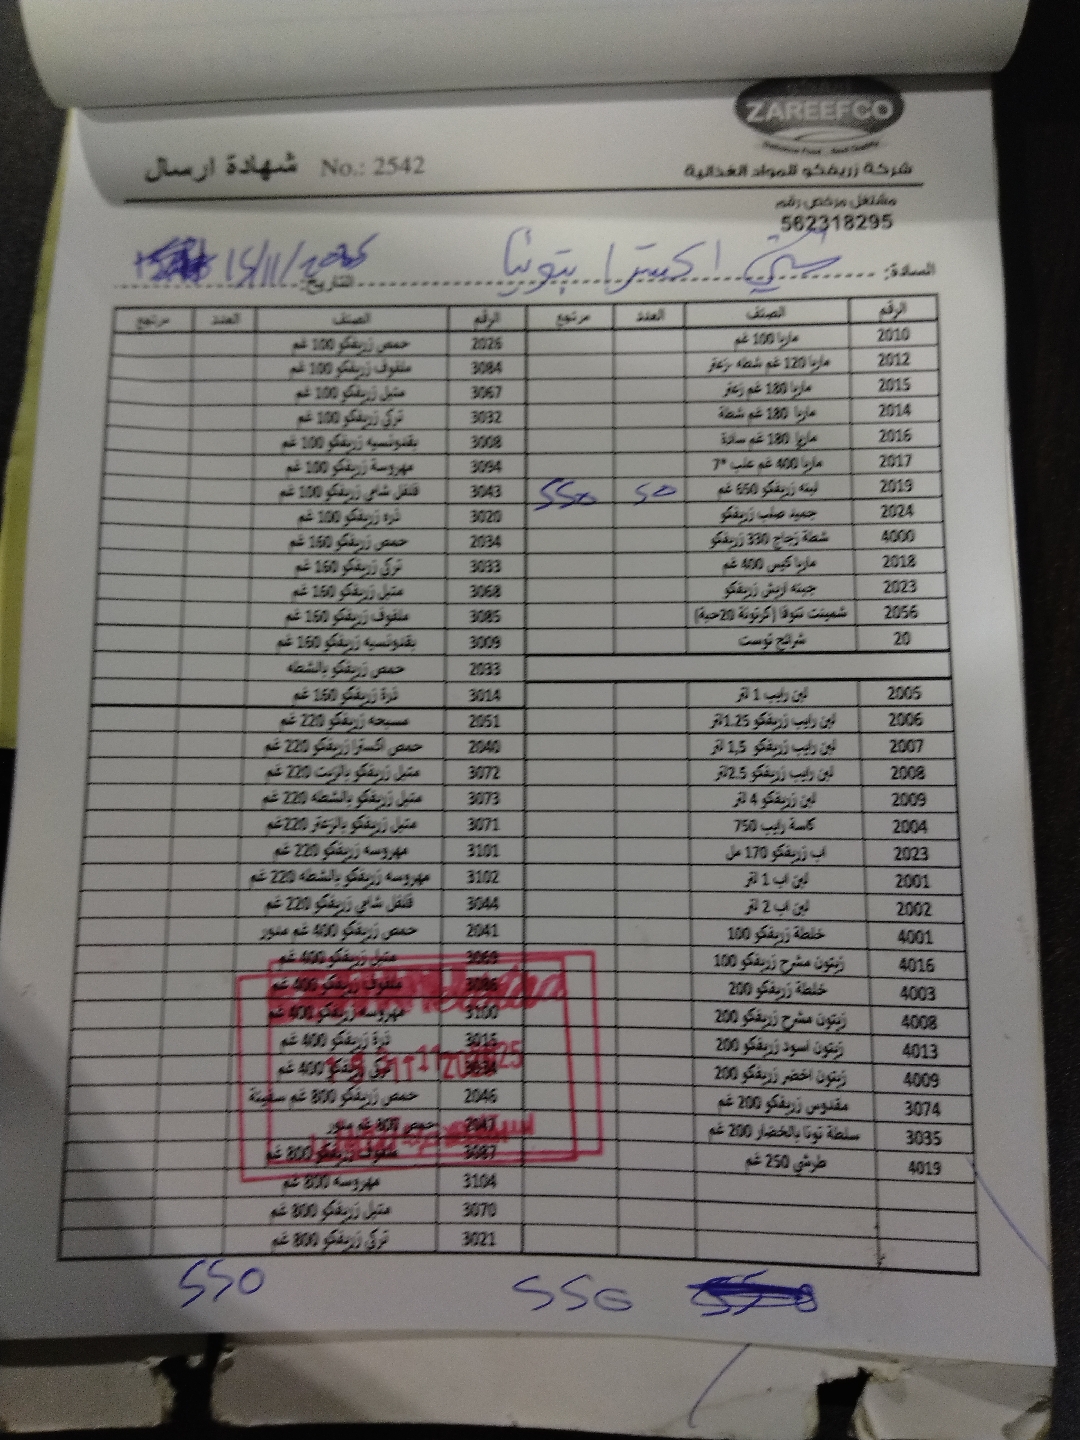 ZAREEFCO
شركة زريفكو للمواد الغذائية
شهادة ارسال No.: 2542
مشتغل مرخص رقم
562318295
السادة: اكسترا بتونيا التاريخ: 15/11/2025
الرقم الصنف العدد مرتجع الرقم الصنف العدد مرتجع
2010 ماريا 100 غم 2026 حمص زريفكو 100 غم
2012 ماريا 120 غم شطه -زعتر 3084 ملفوف زريفكو 100 غم
2015 ماريا 180 غم زعتر 3067 متبل زريفكو 100 غم
2014 ماريا 180 غم شطة 3032 تركي زريفكو 100 غم
2016 ماريا 180 غم سادة 3008 بقدونسيه زريفكو 100 غم
2017 ماريا 400 غم علب *7 3094 مهروسة زريفكو 100 غم
2019 لبنه زريفكو 650 غم 50 550 3043 فلفل شامي زريفكو 100 غم
2024 جميد صلب زريفكو 3020 ذره زريفكو 100 غم
4000 شطة زجاج 330 زريفكو 2034 حمص زريفكو 160 غم
2018 ماريا كيس 400 غم 3033 تركي زريفكو 160 غم
2023 جبنه اريش زريفكو 3068 متبل زريفكو 160 غم
2056 شمينت تنوفا (كرتونة 20حبة) 3085 ملفوف زريفكو 160 غم
20 شرائح توست 3009 بقدونسيه زريفكو 160 غم
2033 حمص زريفكو بالشطه
2005 لبن رايب 1 لتر 3014 ذرة زريفكو 160 غم
2006 لبن رايب زريفكو 1.25لتر 2051 مسبحه زريفكو 220 غم
2007 لبن رايب زريفكو 1,5 لتر 2040 حمص اكسترا زريفكو 220 غم
2008 لبن رايب زريفكو 2.5لتر 3072 متبل زريفكو بالزيت 220 غم
2009 لبن زريفكو 4 لتر 3073 متبل زريفكو بالشطه 220 غم
2004 كاسة رايب 750 3071 متبل زريفكو بالزعتر 220غم
2023 اب زريفكو 170 مل 3101 مهروسه زريفكو 220 غم
2001 لبن اب 1 لتر 3102 مهروسه زريفكو بالشطه 220 غم
2002 لبن اب 2 لتر 3044 فلفل شامي زريفكو 220 غم
4001 خلطة زريفكو 100 2041 حمص زريفكو 400 غم منور
4016 زيتون مشرح زريفكو 100 3069 متبل زريفكو 400 غم
4003 خلطة زريفكو 200 3086 ملفوف زريفكو 400 غم
4008 زيتون مشرح زريفكو 200 3100 مهروسه زريفكو 400 غم
4013 زيتون اسود زريفكو 200 3015 ذرة زريفكو 400 غم
4009 زيتون اخضر زريفكو 200 تركي زريفكو 400 غم
3074 مقدوس زريفكو 200 غم 2046 حمص زريفكو 800 غم سفينة
3035 سلطة تونا بالخضار 200 غم 2047 حمص 800 غم منور
4019 طرشي 250 غم 3087 ملفوف زريفكو 800 غم
3104 مهروسه 800 غم
3070 متبل زريفكو 800 غم
3021 تركي زريفكو 800 غم
550 550